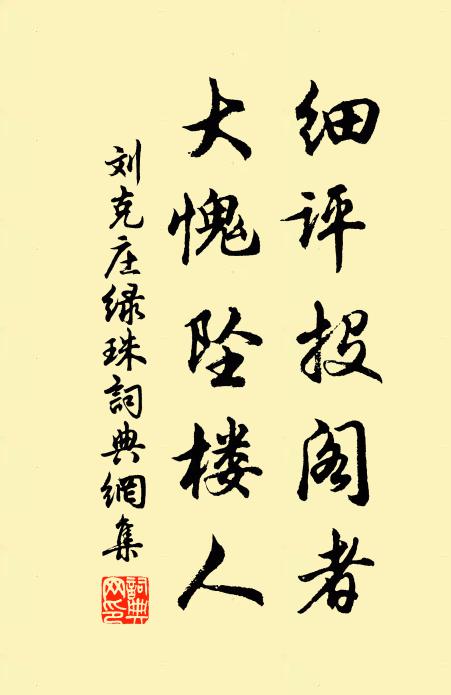 细评投阁者
大愧坠楼人
刘克庄绿珠詞典網集
詞典网印